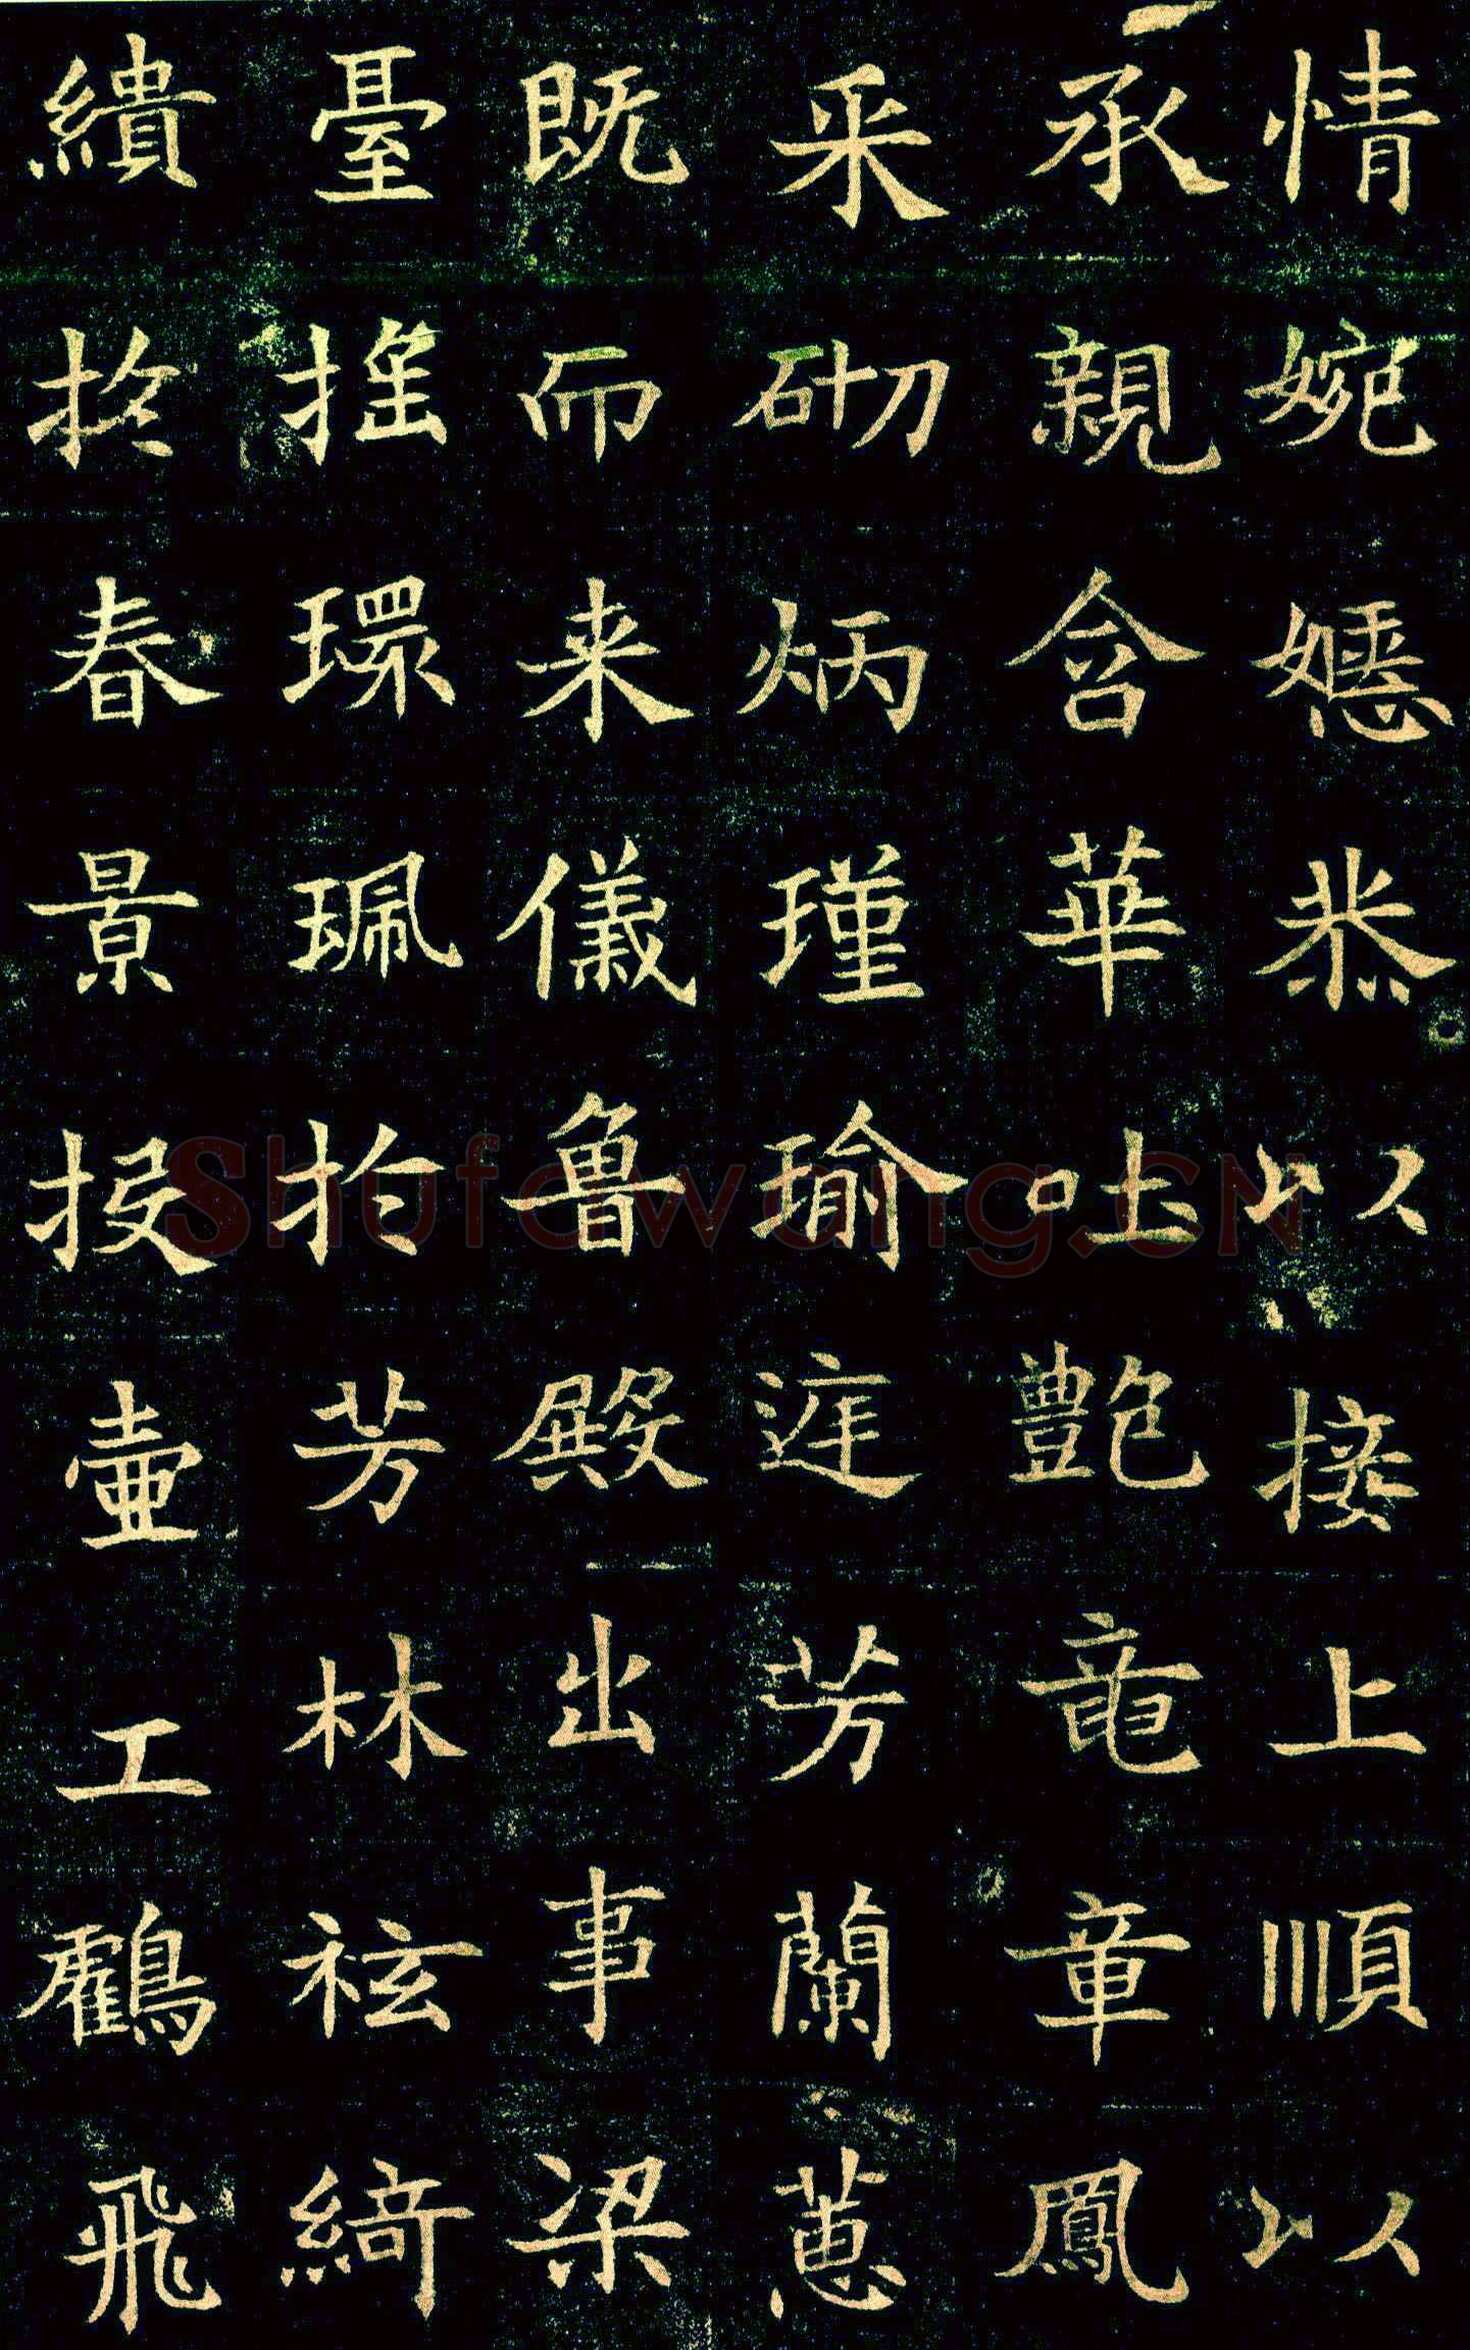 情婉嫕恭以接上順以
承親含華吐艷竜章鳳
采砌炳瑾瑜庭芳蘭蕙
既而来儀魯殿出事梁
臺搖環珮於芳林袨綺
繢於春景投壺工鸖飛
Shufawang.CN